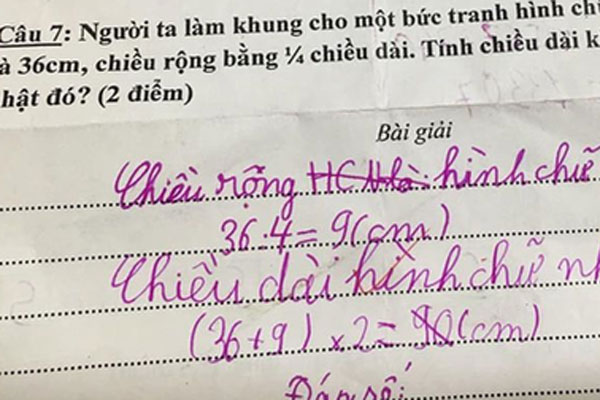 Câu 7: Người ta làm khung cho một bức tranh hình ch
à 36cm, chiều rộng bằng ¼ chiều dài. Tính chiều dài k
hật đó? (2 điểm)
Bài giải
Chiều rộng HCN là: hình chữ
36:4=9(cm)
Chiều dài hình chữ nh
(36+9) x2=90(cm)
Đáp số: